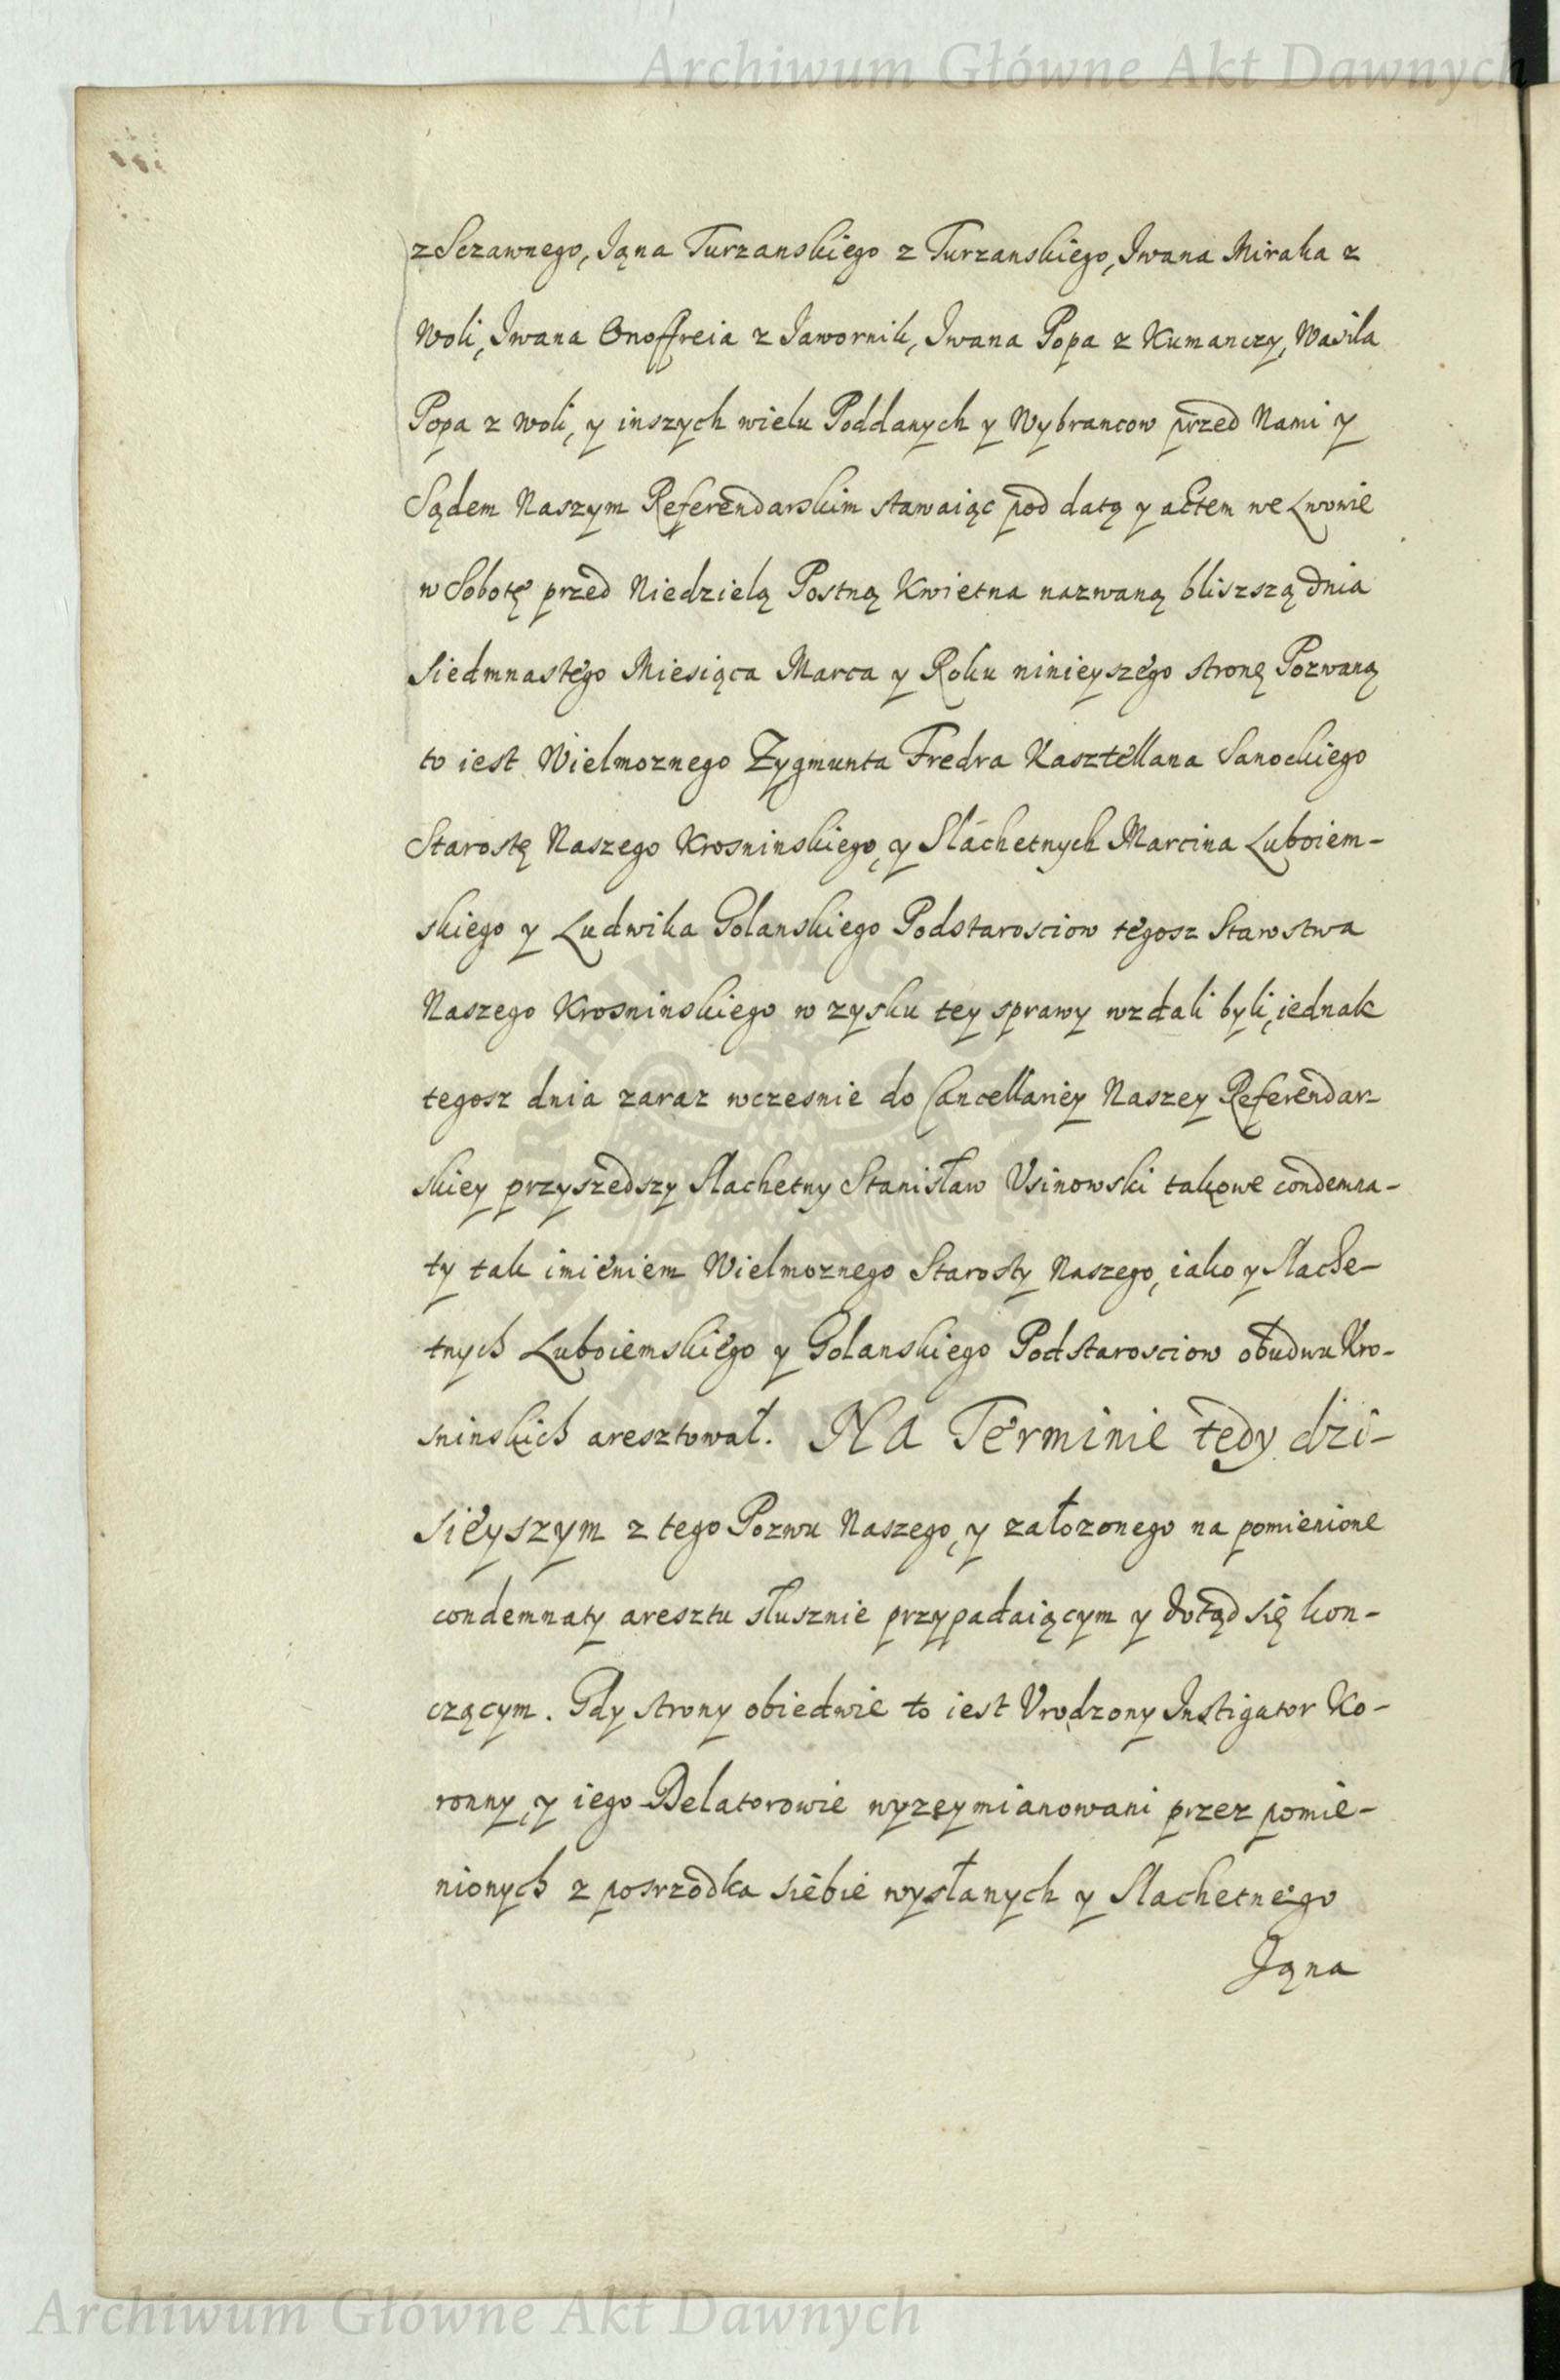 Archiwum Główne Akt Dawnych
z Sczawnego, Iąna Turzanskiego z Turzanskiego, Iwana Miraka z
Woli, Iwana Onoffreia z Iawornik, Iwana Popa z Kumanczy, Wasila
Popa z Woli, y inszych wielu Poddanych y Wybrancow przed Nami y
Sądem Naszym Referendarskim stawaiąc pod datą y actem we Lwowie
w Sobotę przed Niedzielą Postną Kwietna nazwaną bliszszą dnia
Siedmnastego Miesiąca Marca y Roku ninieyszego stronę Pozwaną
to iest Wielmoznego Zygmunta Fredra Kasztellana Sanockiego
Starostę Naszego Krosninskiego, y Slachetnych Marcina Luboiem-
skiego y Ludwika Golanskiego Podstarosciow tegosz Starostwa
Naszego Krosninskiego w zysku tey sprawy wzdali byli, iednak
tegosz dnia zaraz wczesnie do Cancellariey Naszey Referendar-
skiey przyszedszy Slachetny Stanisław Vsinowski takowe condemna-
ty tak imieniem Wielmoznego Starosty Naszego, iako y Slache-
tnych Luboiemskiego y Golanskiego Podstarosciow obudwu Kro-
sninskich aresztował. NA Terminie tedy dzi-
sieyszym z tego Pozwu Naszego, y załozonego na pomienione
condemnaty aresztu słusznie przypadaiącym y dotąd się kon-
czącym. Gdy strony obiedwie to iest Vrodzony Instigator Ko-
ronny, y iego Delatorowie wyzeymianowani przez pomie-
nionych z posrzodka siebie wysłanych y Slachetnego
Iąna
ARCHIWUM GŁÓWNE AKT DAWNYCH
Archiwum Główne Akt Dawnych